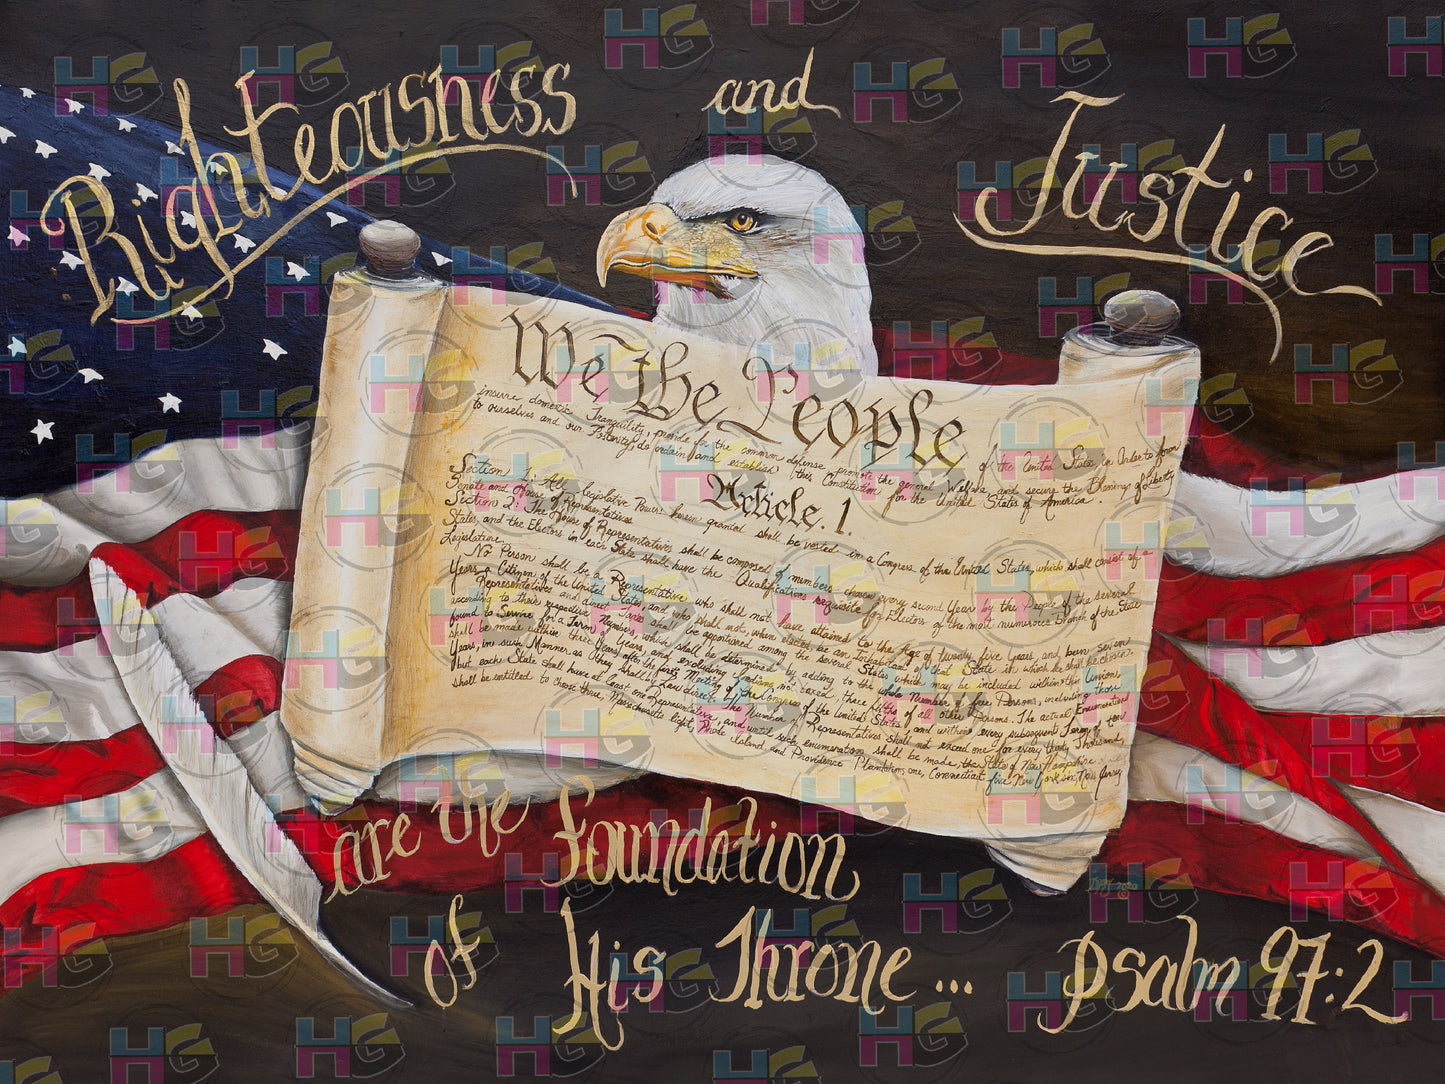 Righteousness and Justice
We The People
of the United States in Order to form
insure domestic Tranquility, provide for the common defense promote the general Welfare and secure the Blessings of Liberty
to ourselves and our Posterity, do ordain and establish this Constitution for the United States of America
Article. 1
Section 1. All legislative Powers herein granted shall be vested in a Congress of the United States, which shall consist of a
Senate and House of Representatives
Section 2. The House of Representatives shall be composed of members chosen every second Year by the People of the several
States, and the Electors in each State shall have the Qualifications requisite for Electors of the most numerous Branch of the State
Legislative.
No Person shall be a Representative who shall not have attained to the Age of twenty five Years, and been seven
Years a Citizen of the United States, and who shall not, when elected, be an Inhabitant of that State in which he shall be chosen.
Representatives and direct Taxes shall be apportioned among the several States which may be included within this Union,
according to their respective Numbers, which shall be determined by adding to the whole Number of free Persons, including those
bound to Service for a Term of Years, and excluding Indians not taxed, three fifths of all other Persons. The actual Enumeration
shall be made within three Years after the first Meeting of the Congress of the United States and within every subsequent Term of ten
Years, in such Manner as they shall by Law direct. The Number of Representatives shall not exceed one for every thirty Thousand,
but each State shall have at least one Representative, and until such enumeration shall be made, the State of New Hampshire
shall be entitled to choose three, Massachusetts Eight, Rhode Island and Providence Plantations one, Connecticut five New York six New Jersey
are the foundation
of His Throne... Psalm 97:2
2020